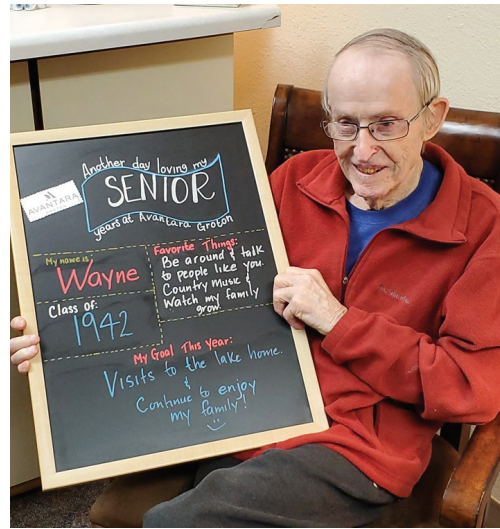 Another day loving my
SENIOR
years at Avantara Groton
AVANTARA
My name is
Wayne
Class of:
1942
Favorite Things:
Be around & talk
to people like you.
Country Music &
Watch my family
grow.
My Goal This Year:
Visits to the lake home.
&
Continue to enjoy
my family!